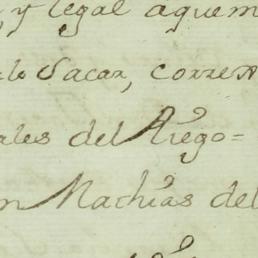 y legal aquem
lo Sacar, corren
ales del Riego=
n Mathias del